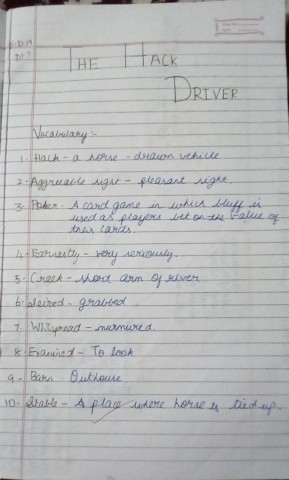 THE HACK
DRIVER
Vocabulary :-
1. Hack - a horse - drawn vehicle
2. Aggreeable sight - pleasant sight.
3. Poker - A card game in which bluff is
used as players bet on the value of
their cards.
4. Earnestly - very seriously.
5. Creek - short arm of river
6. Seized - grabbed.
7. - murmured.
8. Examined - To look
9. Barn - Outhouse
10. Stable - A place where horse is tied up.